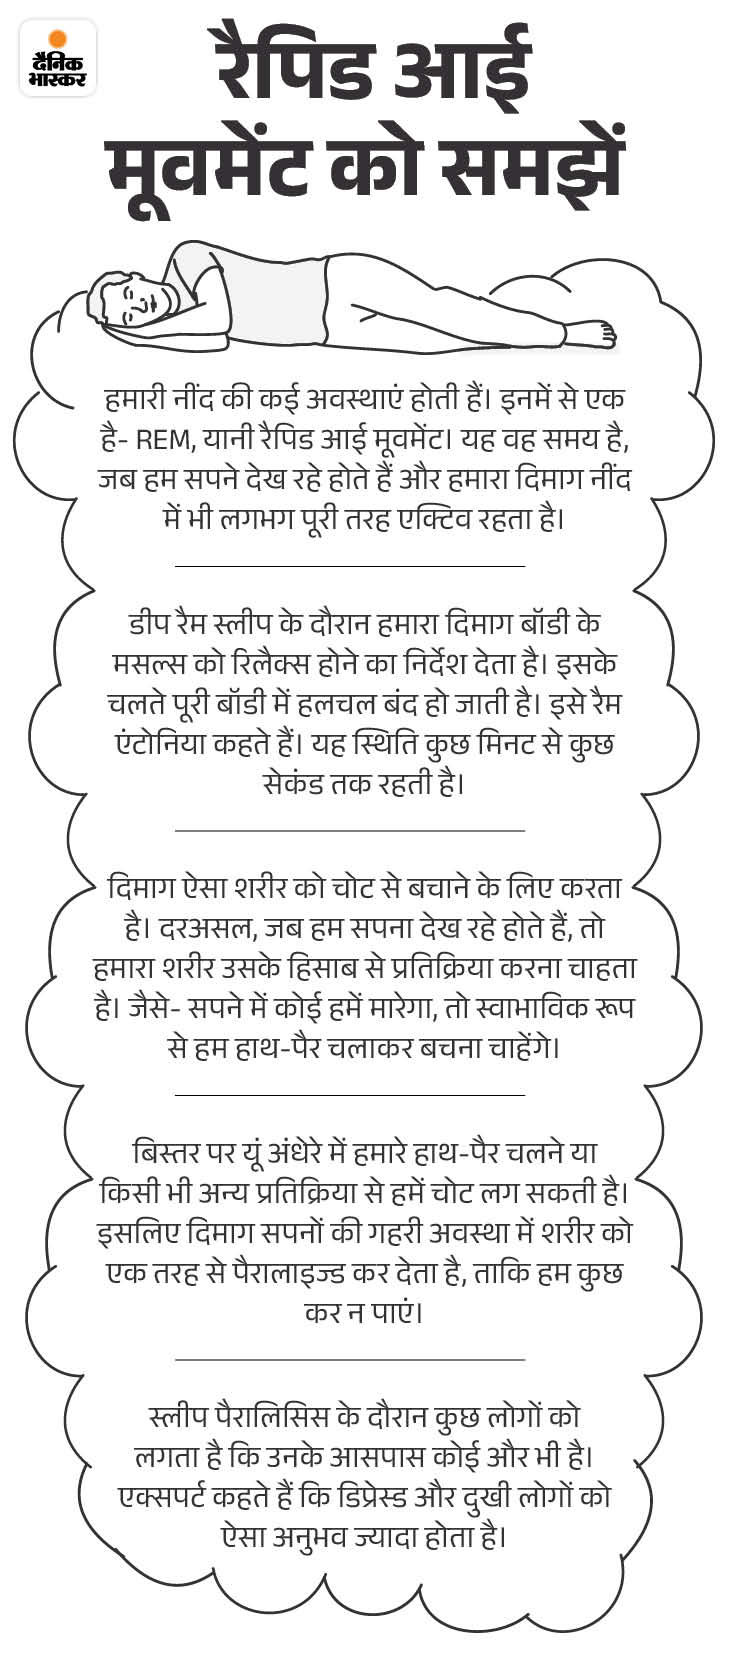 दैनिक
भास्कर
रैपिड आई
मूवमेंट को समझें
हमारी नींद की कई अवस्थाएं होती हैं। इनमें से एक
है- REM, यानी रैपिड आई मूवमेंट। यह वह समय है,
जब हम सपने देख रहे होते हैं और हमारा दिमाग नींद
में भी लगभग पूरी तरह एक्टिव रहता है।
डीप रैम स्लीप के दौरान हमारा दिमाग बॉडी के
मसल्स को रिलैक्स होने का निर्देश देता है। इसके
चलते पूरी बॉडी में हलचल बंद हो जाती है। इसे रैम
एंटोनिया कहते हैं। यह स्थिति कुछ मिनट से कुछ
सेकंड तक रहती है।
दिमाग ऐसा शरीर को चोट से बचाने के लिए करता
है। दरअसल, जब हम सपना देख रहे होते हैं, तो
हमारा शरीर उसके हिसाब से प्रतिक्रिया करना चाहता
है। जैसे- सपने में कोई हमें मारेगा, तो स्वाभाविक रूप
से हम हाथ-पैर चलाकर बचना चाहेंगे।
बिस्तर पर यूं अंधेरे में हमारे हाथ-पैर चलने या
किसी भी अन्य प्रतिक्रिया से हमें चोट लग सकती है।
इसलिए दिमाग सपनों की गहरी अवस्था में शरीर को
एक तरह से पैरालाइज्ड कर देता है, ताकि हम कुछ
कर न पाएं।
स्लीप पैरालिसिस के दौरान कुछ लोगों को
लगता है कि उनके आसपास कोई और भी है।
एक्सपर्ट कहते हैं कि डिप्रेस्ड और दुखी लोगों को
ऐसा अनुभव ज्यादा होता है।